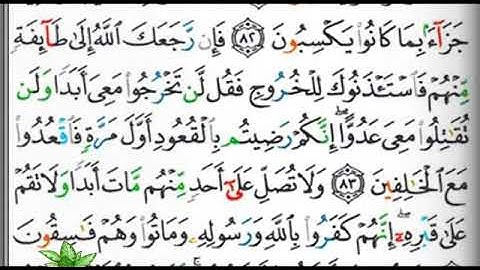 جَزَآءَۢ بِمَا كَانُوا۟ يَكْسِبُونَ ٨٢ فَإِن رَّجَعَكَ ٱللَّهُ إِلَىٰ طَآئِفَةٍ
مِّنْهُمْ فَٱسْتَـْٔذَنُوكَ لِلْخُرُوجِ فَقُل لَّن تَخْرُجُوا۟ مَعِىَ أَبَدًا وَلَن
تُقَـٰتِلُوا۟ مَعِىَ عَدُوًّا ۖ إِنَّكُمْ رَضِيتُم بِٱلْقُعُودِ أَوَّلَ مَرَّةٍ فَٱقْعُدُوا۟
مَعَ ٱلْخَـٰلِفِينَ ٨٣ وَلَا تُصَلِّ عَلَىٰٓ أَحَدٍ مِّنْهُم مَّاتَ أَبَدًا وَلَا تَقُمْ
عَلَىٰ قَبْرِهِۦٓ ۖ إِنَّهُمْ كَفَرُوا۟ بِٱللَّهِ وَرَسُولِهِۦ وَمَاتُوا۟ وَهُمْ فَـٰسِقُونَ